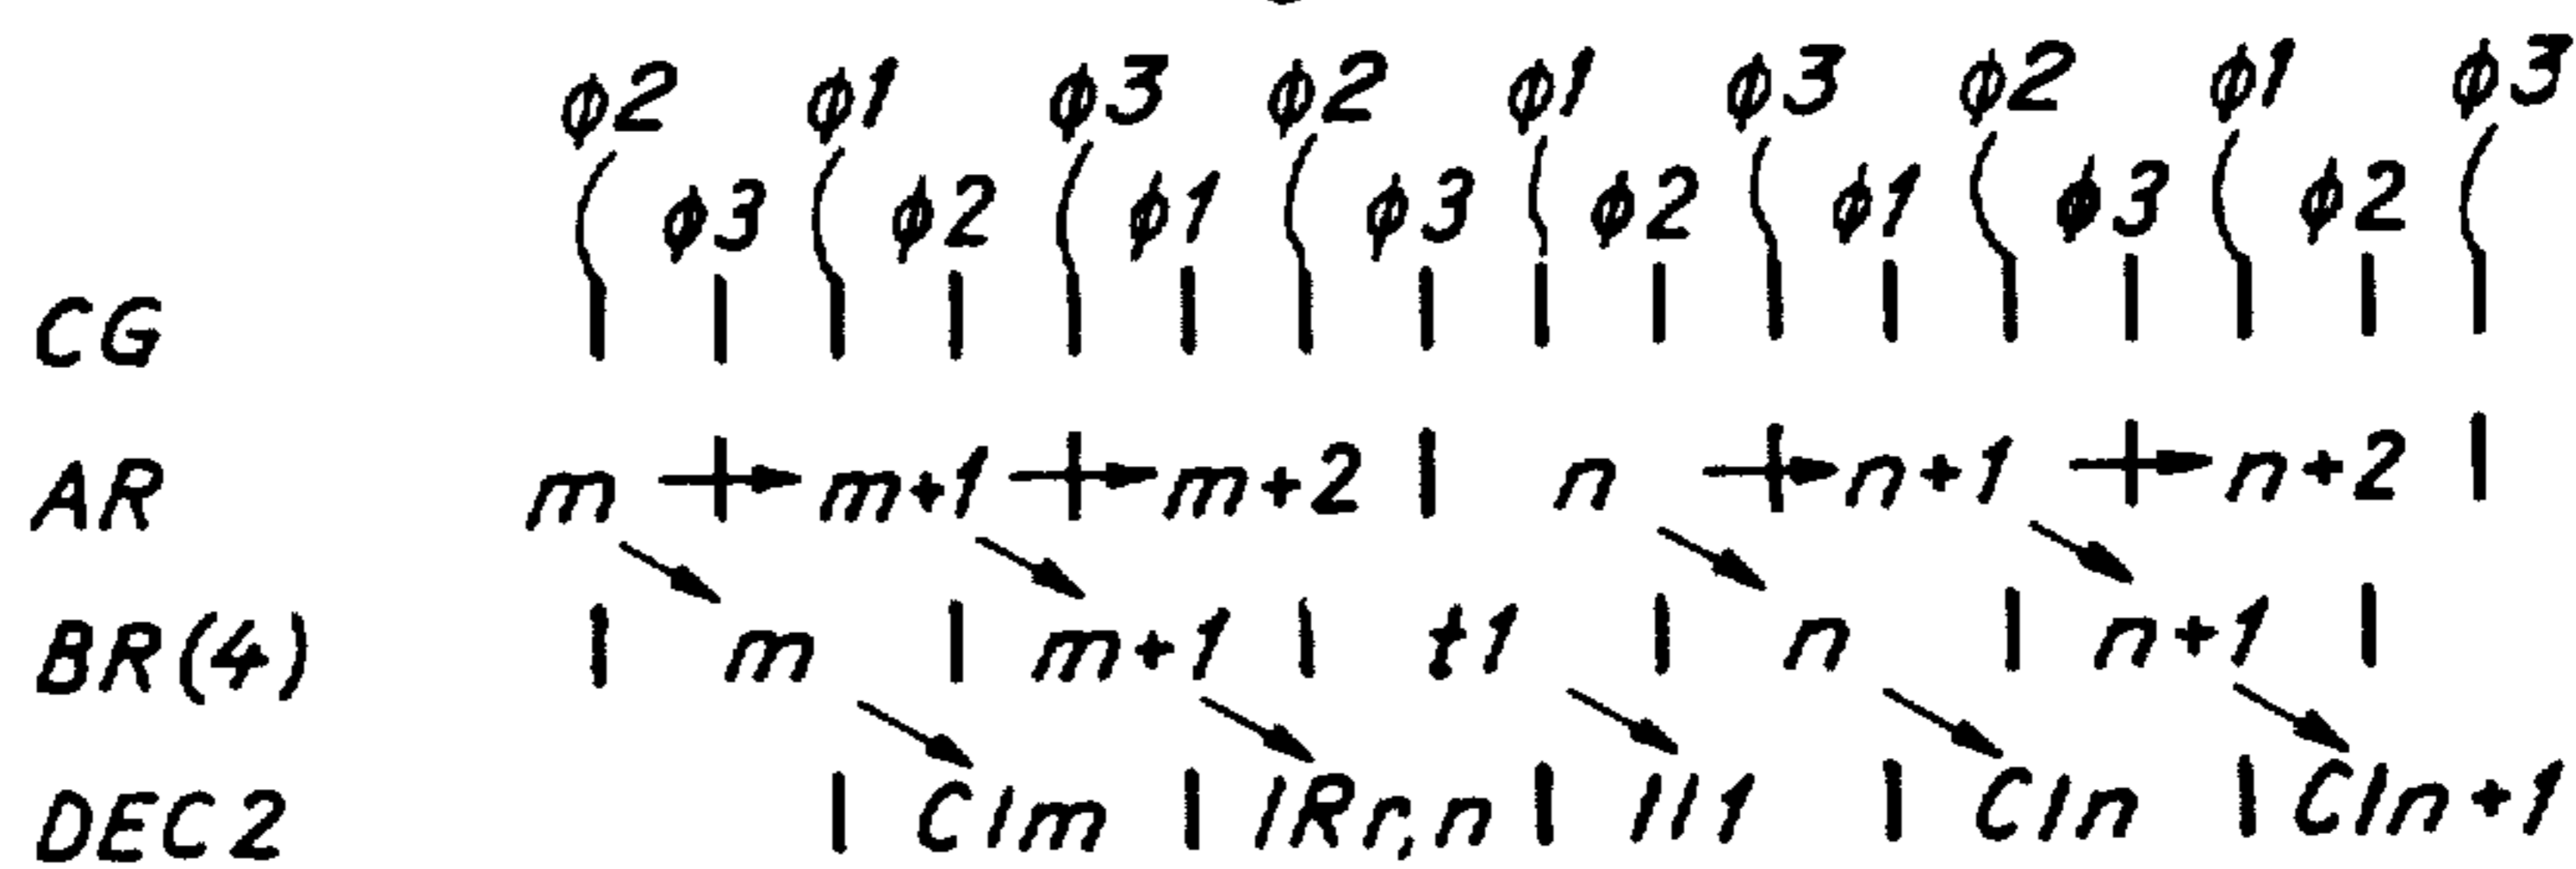 φ2 φ1 φ3 φ2 φ1 φ3 φ2 φ1 φ3
φ3 φ2 φ1 φ3 φ2 φ1 φ3 φ2
CG
AR m m+1 m+2 n n+1 n+2
BR(4) m m+1 t1 n n+1
DEC2 CIm IRr,n II1 CIn CIn+1